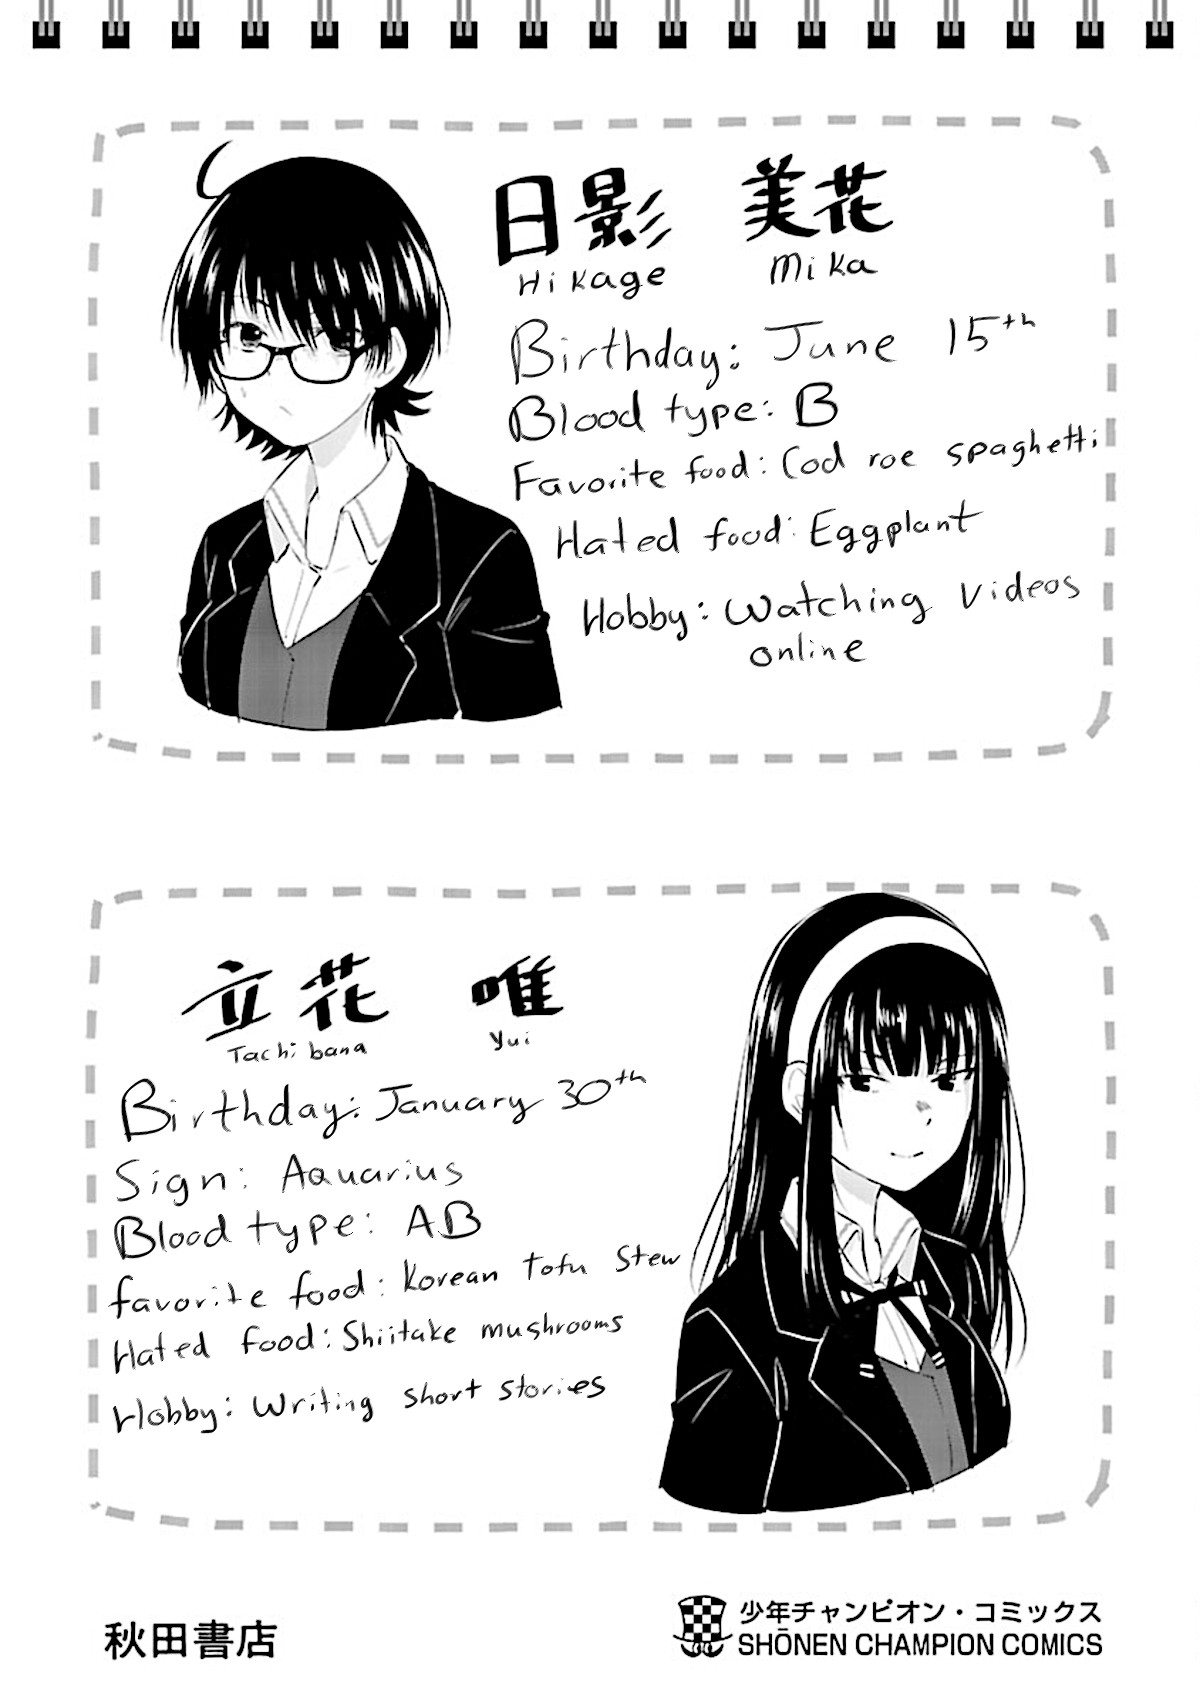 日影 美花
Hikage Mika
Birthday: June 15th
Blood type: B
Favorite food: Cod roe spaghetti
Hated food: Eggplant
Hobby: Watching videos
online
立花 唯
Tachibana Yui
Birthday: January 30th
Sign: Aquarius
Blood type: AB
favorite food: Korean Tofu Stew
Hated food: Shiitake mushrooms
Hobby: Writing short stories
秋田書店
少年チャンピオン・コミックス
SHŌNEN CHAMPION COMICS